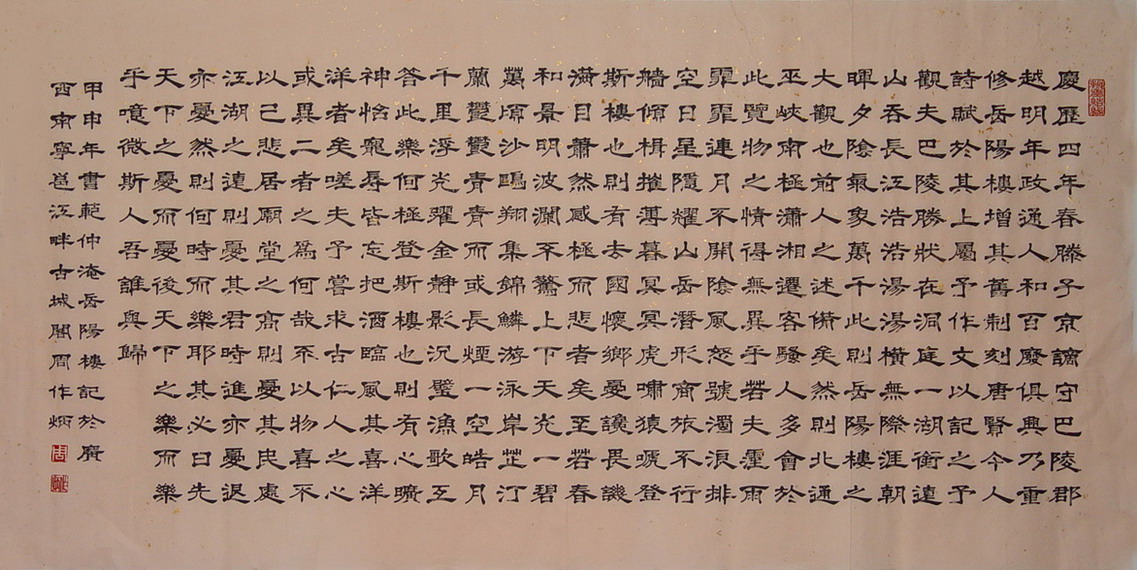 慶歷四年春滕子京謫守巴陵郡
越明年政通人和百廢俱興乃重
修岳陽樓增其舊制刻唐賢今人
詩賦於其上屬予作文以記之予
觀夫巴陵勝狀在洞庭一湖銜遠
山吞長江浩浩湯湯橫無際涯朝
暉夕陰氣象萬千此則岳陽樓之
大觀也前人之述備矣然則北通
巫峽南極瀟湘遷客騷人多會於
此覽物之情得無異乎若夫霪雨
霏霏連月不開陰風怒號濁浪排
空日星隱耀山岳潛形商旅不行
艢傾楫摧薄暮冥冥虎嘯猿嗁登
斯樓也則有去國懷鄉憂讒畏譏
滿目蕭然感極而悲者矣至若春
和景明波瀾不驚上下天光一碧
萬頃沙鷗翔集錦鱗游泳岸芷汀
蘭鬱鬱青青而或長煙一空皓月
千里浮光耀金靜影沉璧漁歌互
答此樂何極登斯樓也則有心曠
神怡寵辱皆忘把酒臨風其喜洋
洋者矣嗟夫予嘗求古仁人之心
或異二者之為何哉不以物喜不
以己悲居廟堂之高則憂其民處
江湖之遠則憂其君時進亦憂退
亦憂然則何時而樂耶其必曰先
天下之憂而憂後天下之樂而樂
乎噫微斯人吾誰與歸
甲申年書範仲淹岳陽樓記於廣
西南寧邕江畔古城閣周作炳